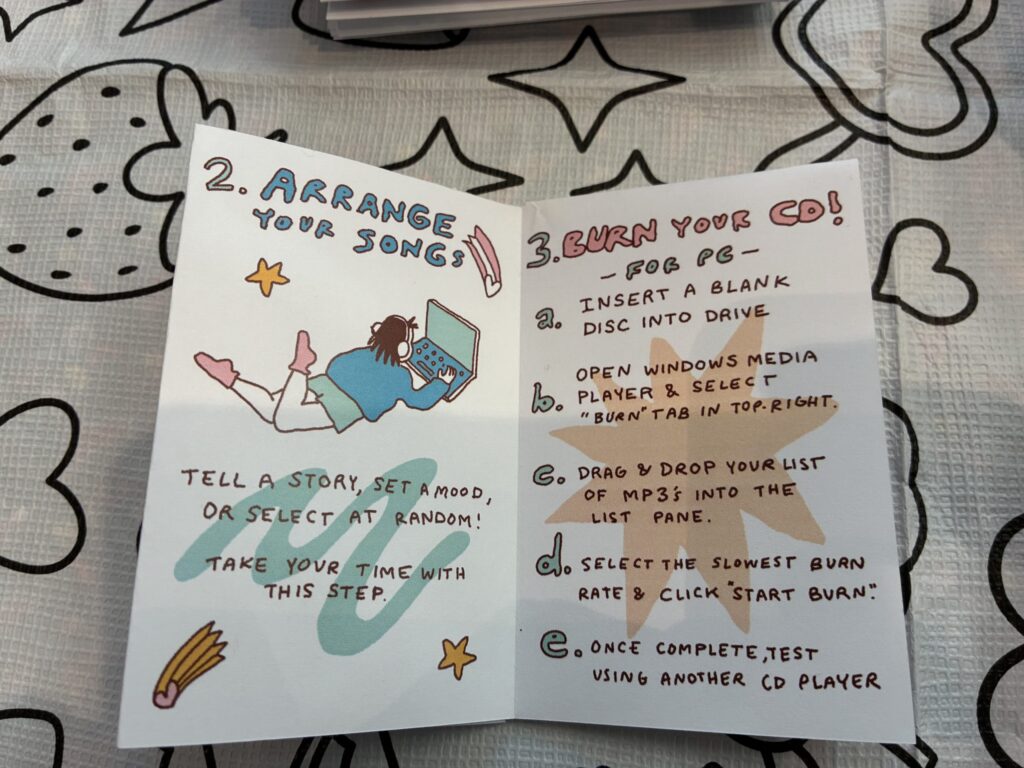 2. ARRANGE
YOUR SONGS
TELL A STORY, SET A MOOD,
OR SELECT AT RANDOM!
TAKE YOUR TIME WITH
THIS STEP.
3. BURN YOUR CD!
- FOR PC -
a. INSERT A BLANK
DISC INTO DRIVE
b. OPEN WINDOWS MEDIA
PLAYER & SELECT
"BURN" TAB IN TOP-RIGHT.
c. DRAG & DROP YOUR LIST
OF MP3's INTO THE
LIST PANE.
d. SELECT THE SLOWEST BURN
RATE & CLICK "START BURN".
e. ONCE COMPLETE, TEST
USING ANOTHER CD PLAYER